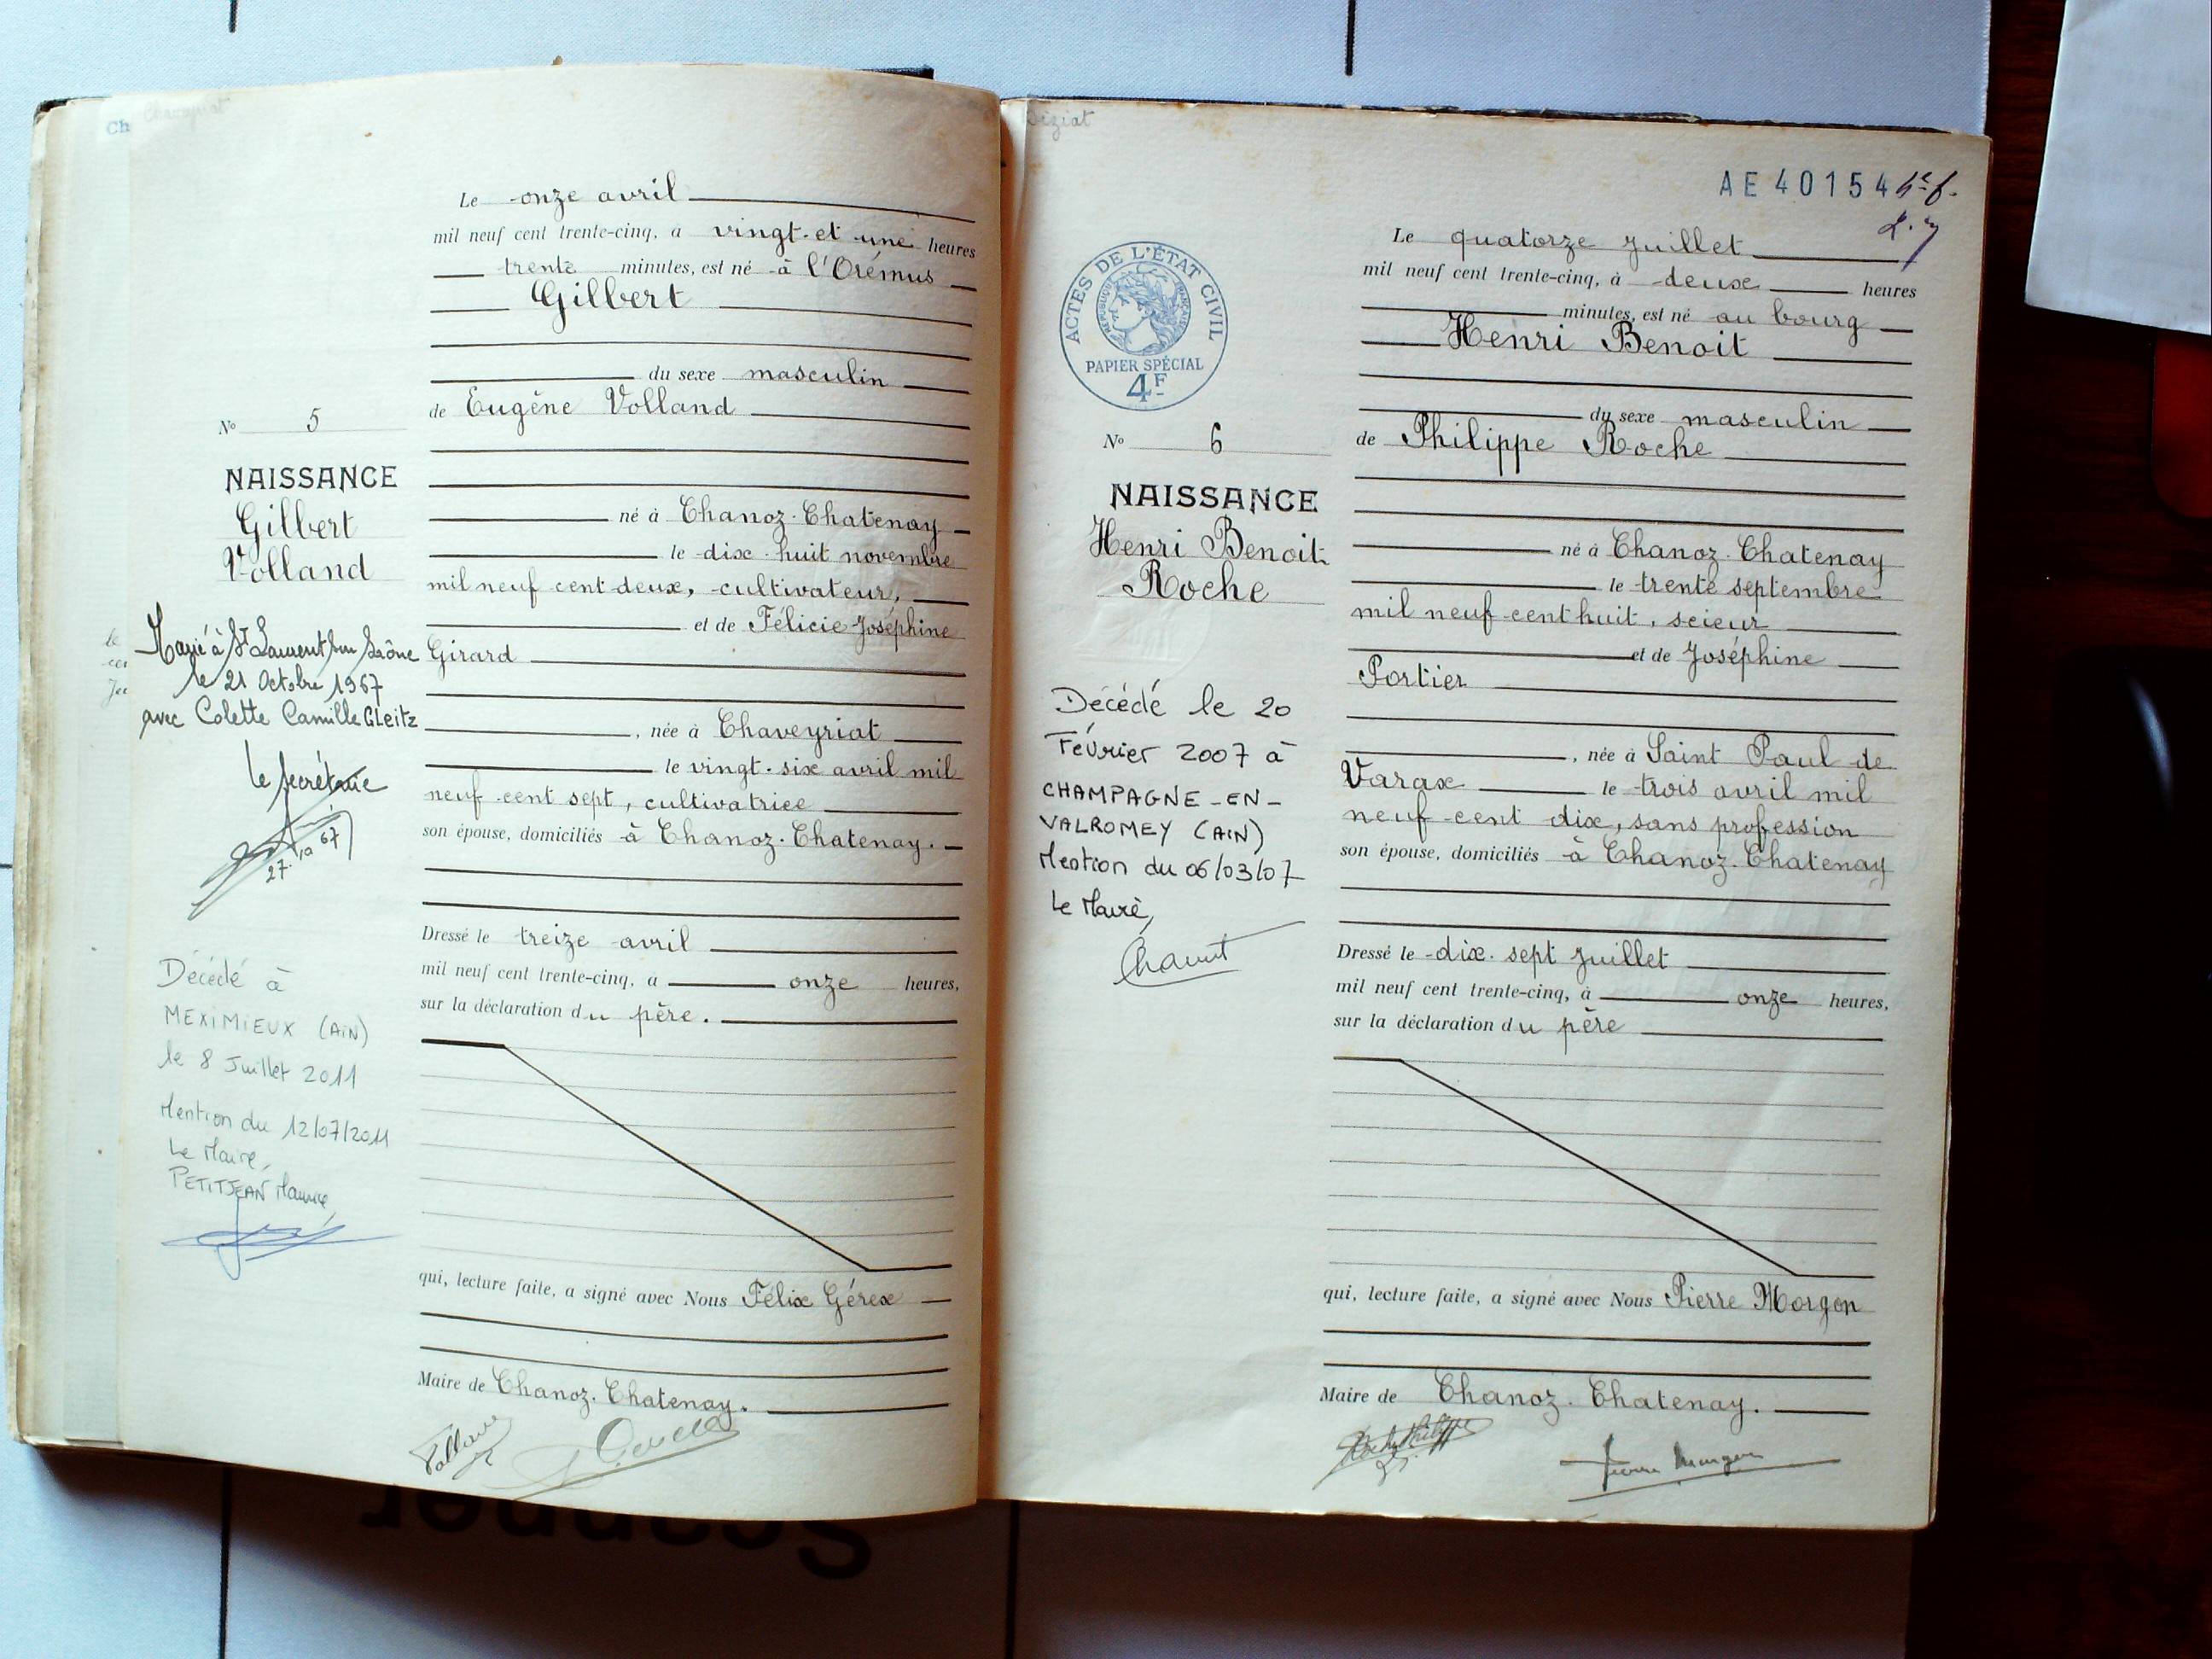 Chaveyriat
Ch
Le onze avril
mil neuf cent trente-cinq, à vingt-et une heures
trente minutes, est né à l'Orémus
Gilbert
du sexe masculin
de Eugène Volland
né à Chanoz-Chatenay
le dix-huit novembre
mil neuf cent deux, cultivateur,
et de Félicie Joséphine
Girard
, née à Chaveyriat
le vingt-six avril mil
neuf cent sept, cultivatrice
son épouse, domiciliés à Chanoz-Chatenay.
Dressé le treize avril
mil neuf cent trente-cinq, à onze heures,
sur la déclaration du père.
qui, lecture faite, a signé avec Nous Félix Gérex
Maire de Chanoz-Chatenay.
Volland
No 5
NAISSANCE
Gilbert
Volland
Marié à St Laurent sur Saône
le 21 Octobre 1967
avec Colette Camille GLeitz
Le Secrétaire
27.10 67
Décédé à
MEXIMIEUX (AIN)
le 8 Juillet 2011
Mention du 12/07/2011
Le Maire,
PETITJEAN Maurice,
Diziat
AE 40154
ACTES DE L'ÉTAT CIVIL
RÉPUBLIQUE FRANÇAISE
PAPIER SPÉCIAL
4F
No 6
NAISSANCE
Henri Benoit
Roche
Décédé le 20
Février 2007 à
CHAMPAGNE-EN-
VALROMEY (AIN)
Mention du 06/03/07
Le Maire,
Le quatorze juillet
mil neuf cent trente-cinq, à deux heures
minutes, est né au bourg
Henri Benoit
du sexe masculin
de Philippe Roche
né à Chanoz-Chatenay
le trente septembre
mil neuf cent huit, scieur
et de Joséphine
Portier
, née à Saint Paul de
Varax le trois avril mil
neuf cent dix, sans profession
son épouse, domiciliés à Chanoz-Chatenay
Dressé le dix-sept juillet
mil neuf cent trente-cinq, à onze heures,
sur la déclaration du père
qui, lecture faite, a signé avec Nous Pierre Morgon
Maire de Chanoz-Chatenay.
Roche Philippe
Pierre Morgon
Scanner